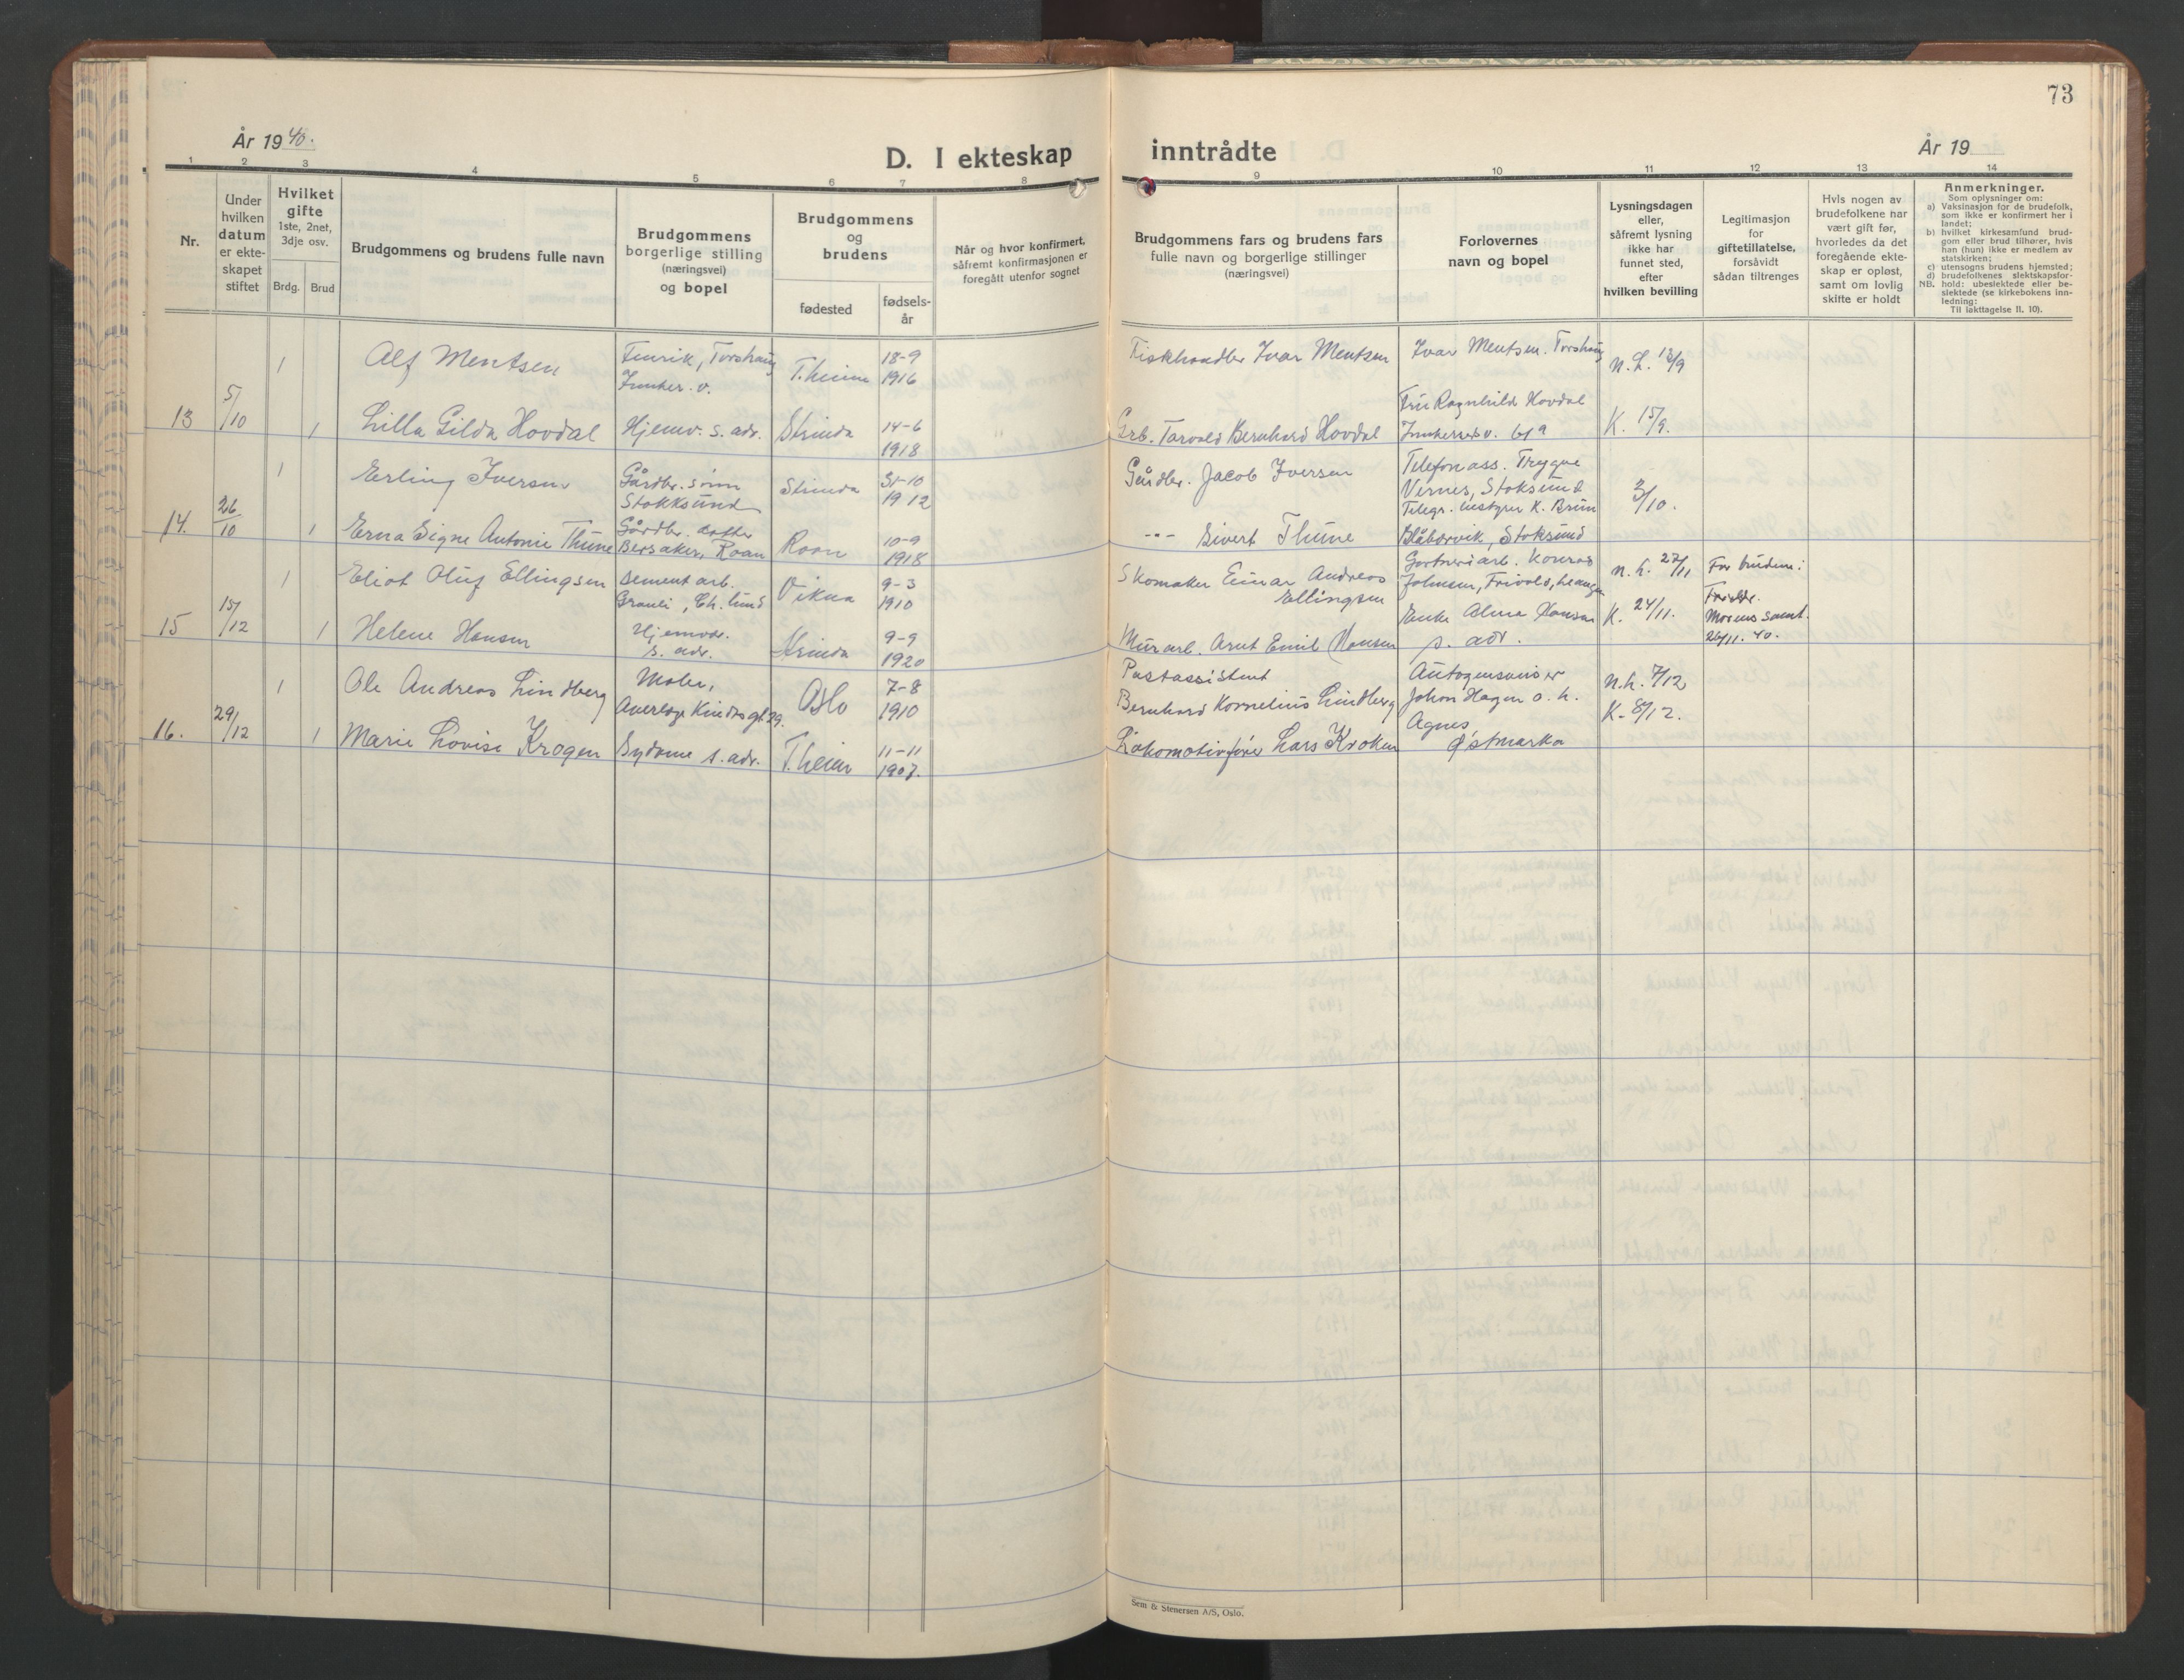 73
År 1940.
D. I ekteskap inntrådte
År 19
1 2 3 4 5 6 7 8 9 10 11 12 13 14
Nr.
Under hvilken datum er ekteskapet stiftet
Hvilket gifte 1ste, 2net, 3dje osv.
Brdg. Brud
Brudgommens og brudens fulle navn
Brudgommens borgerlige stilling (næringsvei) og bopel
Brudgommens og brudens
fødested
fødselsår
Når og hvor konfirmert, såfremt konfirmasjonen er foregått utenfor sognet
Brudgommens fars og brudens fars fulle navn og borgerlige stillinger (næringsvei)
Forlovernes navn og bopel
Lysningsdagen eller, såfremt lysning ikke har funnet sted, efter hvilken bevilling
Legitimasjon for giftetillatelse, forsåvidt sådan tiltrenges
Hvis nogen av brudefolkene har vært gift før, hvorledes da det foregående ekteskap er opløst, samt om lovlig skifte er holdt
Anmerkninger.
Som oplysninger om:
a) Vaksinasjon for de brudefolk, som ikke er konfirmert her i landet;
b) hvilket kirkesamfund brudgom eller brud tilhører, hvis han (hun) ikke er medlem av statskirken;
c) utensogns brudens hjemsted;
d) brudefolkenes slektskapsforhold: ubeslektede eller beslektede (se kirkebokens innledning:
NB. Til Iakttagelse II. 10).
1 Alf Mentsen Fenrik, Torshaug Junker.v. T.heim 18-9 1916 Fiskhandler Ivar Mentsen Ivar Mentsen. Torshaug N.L. 18/9
13 5/10 1 Lilla Gilda Hovdal Hjemv. s. adr. Strinda 14-6 1918 Grb. Torvald Bernhard Hovdal Fru Ragnhild Hovdal K. 15/9.
1 Erling Iversen Gårdbr. sønn Stokksund Strinda 31-10 1912 Gårdbr. Jacob Iversen Telefonass. Trygve Vernes, Stoksund 3/10.
14. 26/10 1 Erna Signe Antonie Thune Gårdbr. datter Bersaker, Roan Roan 10-9 1918 -"- Sivert Thune Telegr. bestyrer K. Brun Blåbærvik, Stoksund
1 Eliot Oluf Ellingsen Sement arb. Granli, Ch. lund Vikna 9-3 1910 Skomaker Einar Andreas Ellingsen Gartneriarb. Konrad Johnsen, Frivold, Leangen N.L. 27/11 For bruden:
15 15/12 1 Helene Hansen Hjemvær. s. adr. Strinda 9-9 1920 Murarb. Arnt Emil Hansen Enke Alma Hansen s. adr. K. 24/11. Morens samt. 26/11. 40.
1 Ole Andreas Lindberg Maler, Oslo 7-8 1910 Postassistent Bernhard Kornelius Lindberg Autogensveiser Johan Hagen o. h. Agnes N.L. 7/12 K. 8/12.
16. 29/12 1 Marie Lovise Krogen Sydame s. adr. T.heim 11-11 1907. Lokomotivfører Lars Kroken Østmarka
Sem & Stenersen A/S, Oslo.